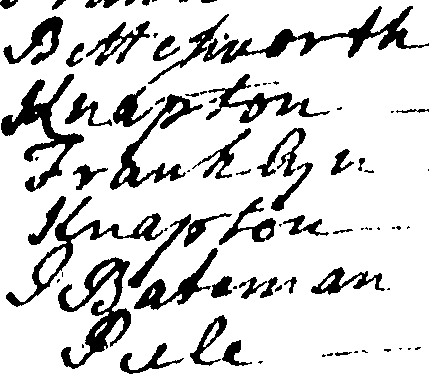 Bettesworth
Knapton
Franklyn
Knapton
J Bateman
Pele